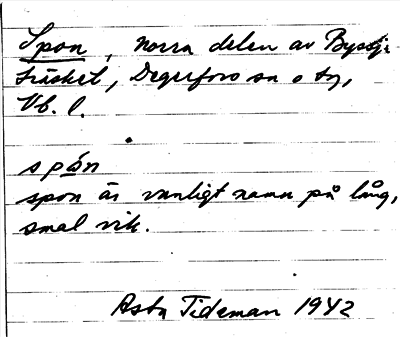 Spon, norra delen av Byssje-
träsket, Degerfors sn o tg,
Vb. l.
spån
spon är vanligt namn på lång,
smal vik.
Asta Tideman 1942